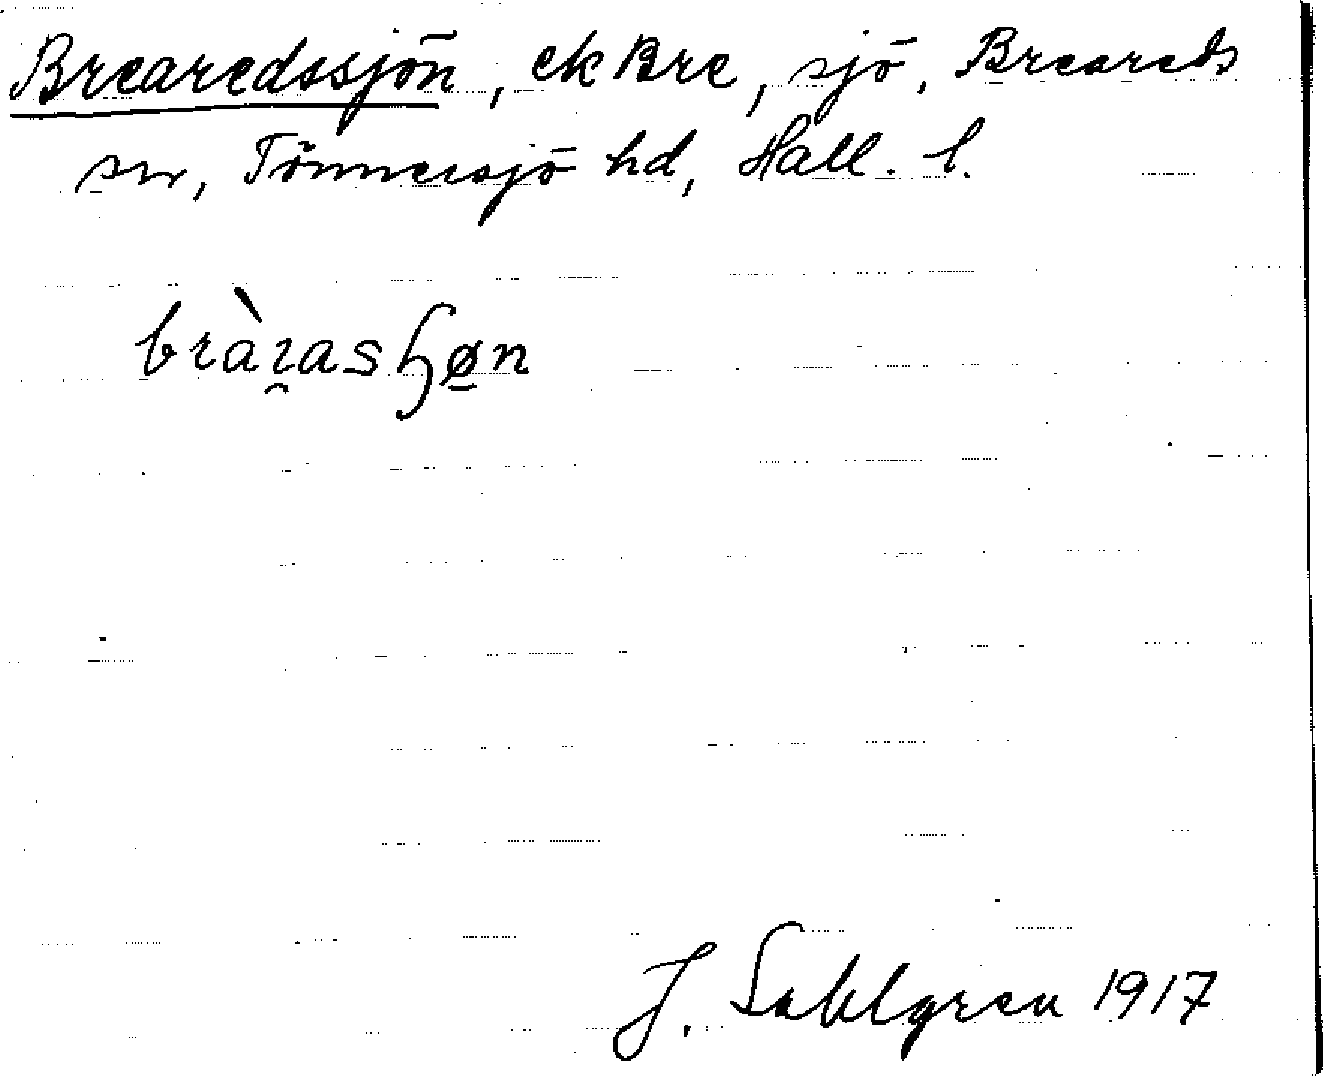 Brearedssjön, ekBre, sjö, Breareds
sn, Tönnersjö hd, Hall. l.
bràrasɧøn
J. Sahlgren 1917